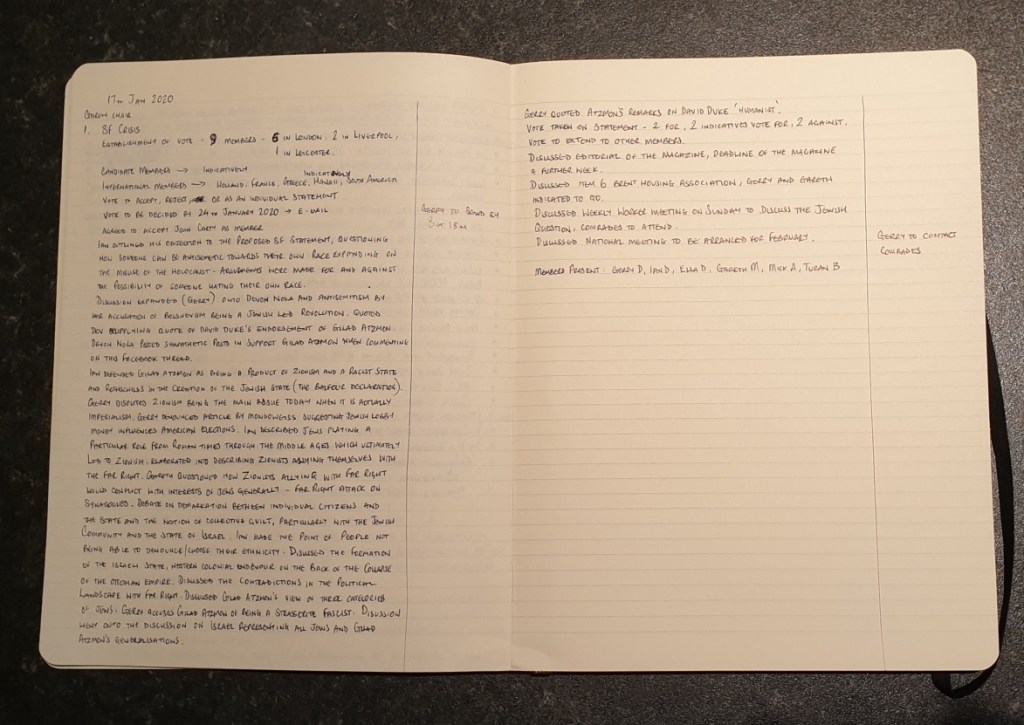 17TH JAN 2020
GARETH CHAIR
1. SF CRISIS
ESTABLISHMENT OF VOTE - 9 MEMBERS - 6 IN LONDON, 2 IN LIVERPOOL,
1 IN LEICESTER.
CANDIDATE MEMBERS → INDICATIVELY
INDICATIVELY
INTERNATIONAL MEMBERS → HOLLAND, FRANCE, GREECE, HAWAII, SOUTH AMERICA
VOTE TO ACCEPT, REJECT OR AS AN INDIVIDUAL STATEMENT
VOTE TO BE DECIDED BY 24TH JANUARY 2020 → E-MAIL
AGREED TO ACCEPT JOHN CARTY AS MEMBER
IAN OUTLINED HIS OBJECTION TO THE PROPOSED SF STATEMENT, QUESTIONING
HOW SOMEONE CAN BE ANTISEMITIC TOWARDS THEIR OWN RACE EXPANDING ON
THE MISUSE OF THE HOLOCAUST - ARGUMENTS WERE MADE FOR AND AGAINST
THE POSSIBILITY OF SOMEONE HATING THEIR OWN RACE.
DISCUSSION EXPANDED (GERRY) ONTO DEVON NOLA AND ANTISEMITISM BY
HER ACCUSATION OF BOLSHEVISM BEING A JEWISH LED REVOLUTION. QUOTED
DEV SUPPLYING QUOTE OF DAVID DUKE'S ENDORSEMENT OF GILAD ATZMON.
DEVON NOLA POSTED SYMPATHETIC POSTS IN SUPPORT GILAD ATZMON WHEN COMMENTING
ON THIS FACEBOOK THREAD.
IAN DEFENDED GILAD ATZMON AS BEING A PRODUCT OF ZIONISM AND A RACIST STATE
AND ROTHSCHILDS IN THE CREATION OF THE JEWISH STATE (THE BALFOUR DECLARATION)
GERRY DISPUTED ZIONISM BEING THE MAIN ISSUE TODAY WHEN IT IS ACTUALLY
IMPERIALISM. GERRY DENOUNCED ARTICLE BY MONDOWEISS SUGGESTING JEWISH LOBBY
MONEY INFLUENCES AMERICAN ELECTIONS. IAN DESCRIBED JEWS PLAYING A
PARTICULAR ROLE FROM ROMAN TIMES THROUGH THE MIDDLE AGES WHICH ULTIMATELY
LED TO ZIONISM. ELABORATED INTO DESCRIBING ZIONISTS ALLYING THEMSELVES WITH
THE FAR RIGHT. GARETH QUESTIONED HOW ZIONISTS ALLYING WITH FAR RIGHT
WOULD CONFLICT WITH INTERESTS OF JEWS GENERALLY - FAR RIGHT ATTACK ON
SYNAGOGUES. DEBATE ON DEMARKATION BETWEEN INDIVIDUAL CITIZENS AND
THE STATE AND THE NOTION OF COLLECTIVE GUILT, PARTICULARLY WITH THE JEWISH
COMMUNITY AND THE STATE OF ISRAEL. IAN MADE THE POINT OF PEOPLE NOT
BEING ABLE TO DENOUNCE/CHOOSE THEIR ETHNICITY. DISCUSSED THE FORMATION
OF THE ISRAELI STATE, WESTERN COLONIAL ENDEAVOUR ON THE BACK OF THE COLLAPSE
OF THE OTTOMAN EMPIRE. DISCUSSED THE CONTRADICTIONS IN THE POLITICAL
LANDSCAPE WITH FAR RIGHT. DISCUSSED GILAD ATZMON'S VIEW OF THREE CATEGORIES
OF JEWS. GERRY ACCUSES GILAD ATZMON OF BEING A STRASSERITE FASCIST. DISCUSSION
WENT ONTO THE DISCUSSION ON ISRAEL REPRESENTING ALL JEWS AND GILAD
ATZMON'S GENERALISATIONS.
GERRY TO SEND BY
SAT 18TH
GERRY QUOTED ATZMON'S REMARKS ON DAVID DUKE 'HUMANIST'.
VOTE TAKEN ON STATEMENT - 2 FOR, 2 INDICATIVES VOTE FOR, 2 AGAINST.
VOTE TO EXTEND TO OTHER MEMBERS.
DISCUSSED EDITORIAL OF THE MAGAZINE, DEADLINE OF THE MAGAZINE
A FURTHER WEEK.
DISCUSSED ITEM 6 BRENT HOUSING ASSOCIATION, GERRY AND GARETH
INDICATED TO GO.
DISCUSSED WEEKLY WORKER MEETING ON SUNDAY TO DISCUSS THE JEWISH
QUESTION, COMRADES TO ATTEND.
DISCUSSED NATIONAL MEETING TO BE ARRANGED FOR FEBRUARY.
MEMBERS PRESENT: GERRY D, IAN D, ELLA D, GARETH M, MICK A, TURAN B
GERRY TO CONTACT
COMRADES